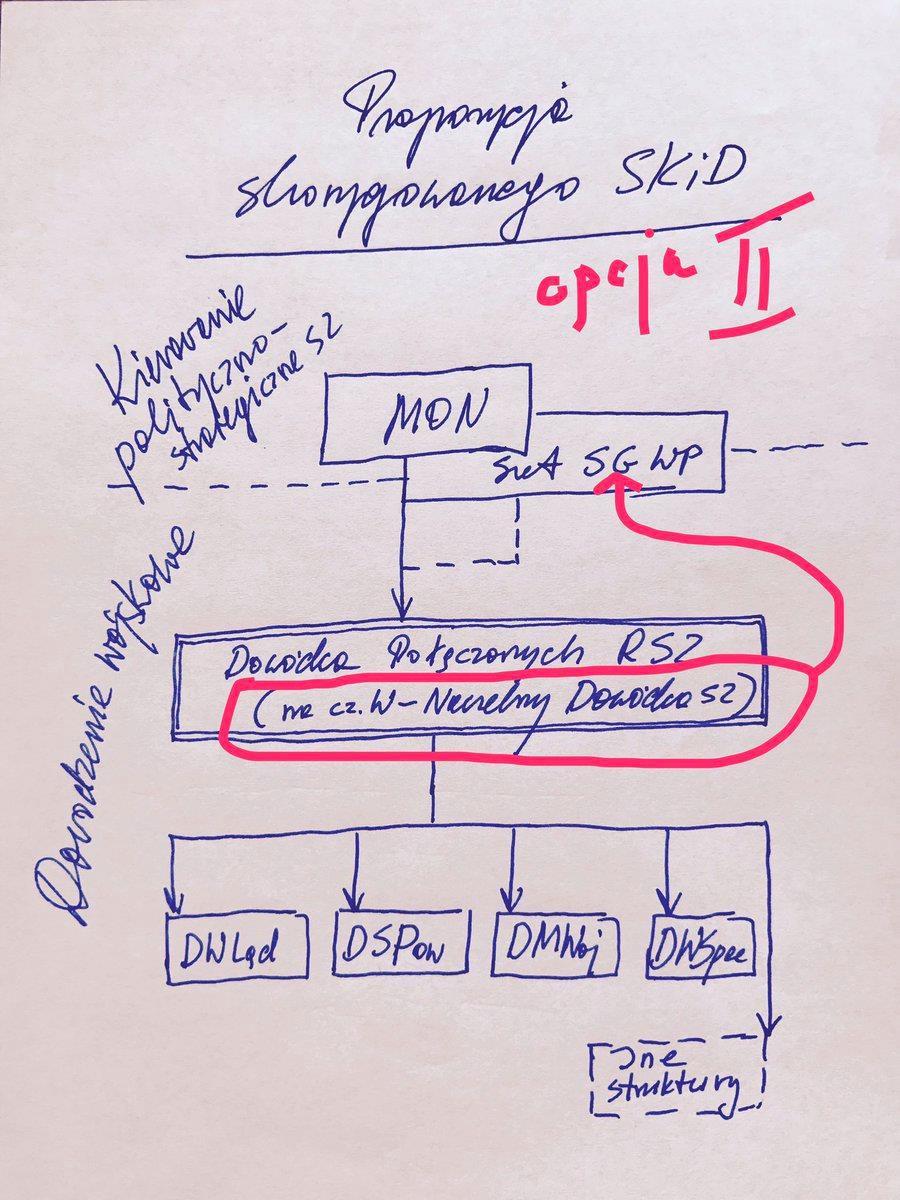 Propozycja
skorygowanego SKiD
opcja II
Kierowanie
polityczno-
strategiczne SZ
MON
Szef SG WP
Dowodzenie wojskowe
Dowódca Połączonych RSZ
(na cz. W – Naczelny Dowódca SZ)
DWLąd
DSPow
DMWoj
DWSpec
Jne
struktury